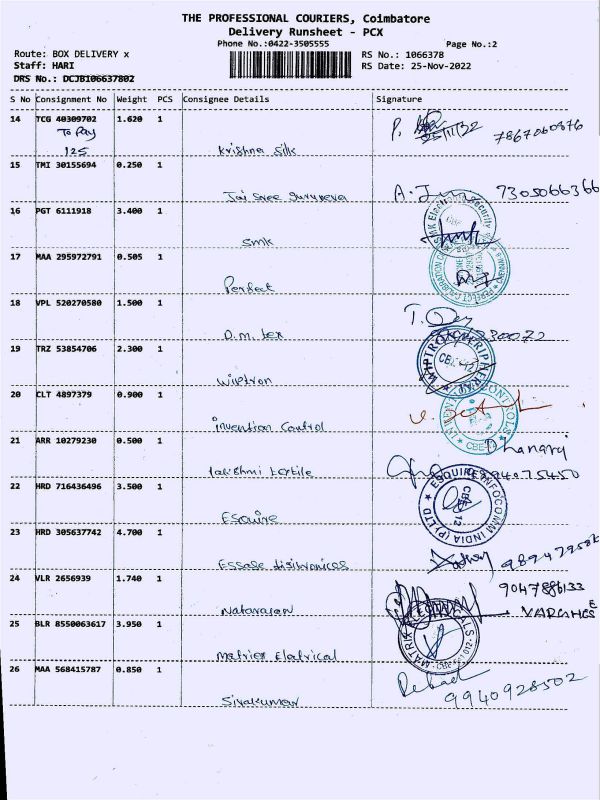 THE PROFESSIONAL COURIERS, Coimbatore
Delivery Runsheet - PCX
Phone No.:0422-3505555 Page No.:2
Route: BOX DELIVERY x RS No.: 1066378
Staff: HARI RS Date: 25-Nov-2022
DRS No.: DCJB106637802
S No Consignment No Weight PCS Consignee Details Signature
14 TCG 40309702 1.620 1
To Pay
125
Krishna Silk 7867060876
15 TMI 30155694 0.250 1
Jai Sree 7305066366
16 PGT 6111918 3.400 1
SMK
17 MAA 295972791 0.505 1
Perfect
18 VPL 520270580 1.500 1
D.M. tex
19 TRZ 53854706 2.300 1
Wiptron
20 CLT 4897379 0.900 1
invention Control
21 ARR 10279230 0.500 1 Dhanaraj
22 HRD 716436496 3.500 1
Esquire ESQUIRE INFOCOMM INDIA (P) LTD
CBE 12
23 HRD 305637742 4.700 1
24 VLR 2656939 1.740 1 9047886133
Natarajan
25 BLR 8550063617 3.950 1
Matrix Elatrical
26 MAA 568415787 0.850 1
Sivakumar 9940928502